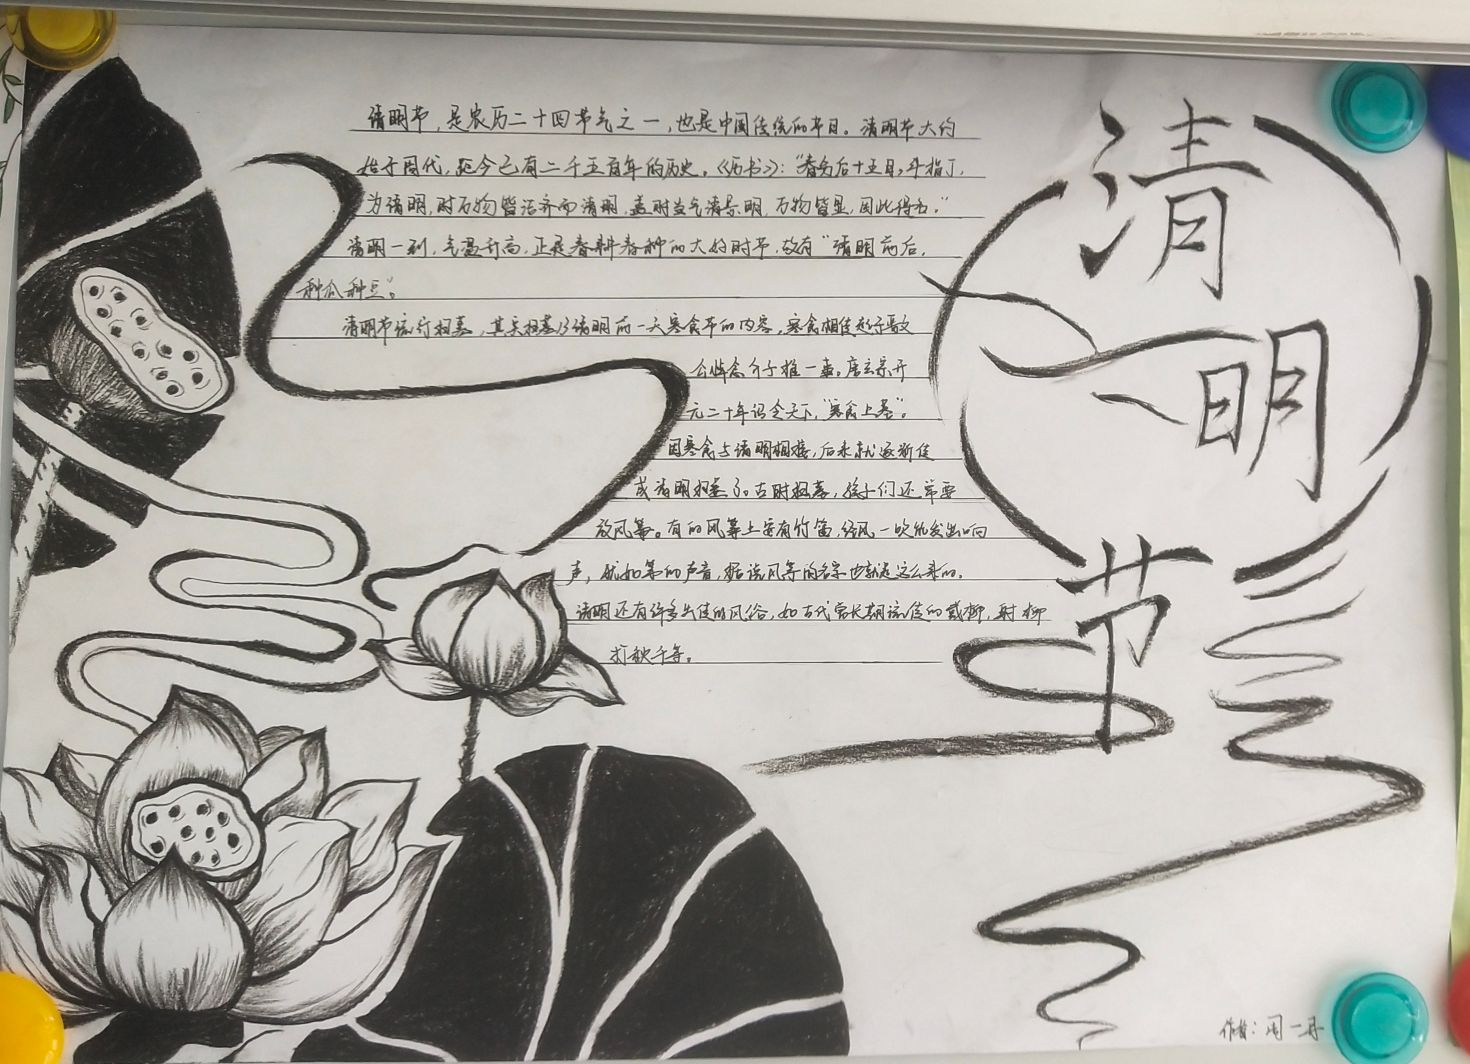 清明节
清明节，是农历二十四节气之一，也是中国传统的节日。清明节大约
始于周代，距今已有二千五百年的历史。《历书》：“春分后十五日，斗指丁，
为清明，时万物皆洁齐而清明，盖时当气清景明，万物皆显，因此得名。”
清明一到，气温升高，正是春耕春种的大好时节，故有“清明前后，
种瓜种豆”。
清明节流行扫墓，其实扫墓乃清明前一天寒食节的内容，寒食相传起于晋文
公悼念介子推一事。唐玄宗开
元二十年诏令天下，“寒食上墓”。
因寒食与清明相接，后来就逐渐传
成清明扫墓了。古时扫墓，孩子们还常要
放风筝。有的风筝上安有竹笛，经风一吹能发出响
声，犹如筝的声音，据说风筝的名字也就是这么来的。
清明还有许多失传的风俗，如古代曾长期流传的戴柳，射柳
打秋千等。
作者：周一丹